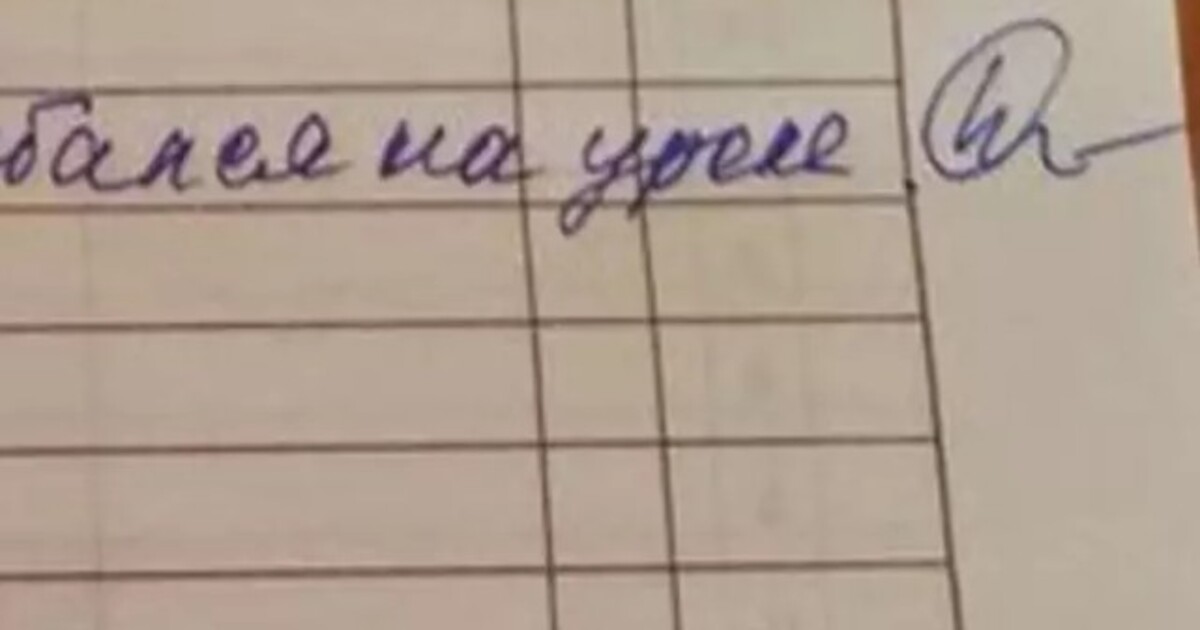 бался на уроке